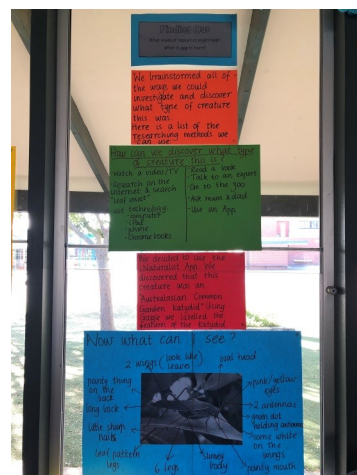 Finding Out
We brainstormed all of
the ways we could
investigate and discover
what type of creature
this was.
Here is a list of the
researching methods we
can use
How can we discover what type
of creature this is?
Watch a video/TV
Research on the
internet & search
"leaf insect"
use technology
- computer
- iPad
- phone
- Chrome books
Read a book
Talk to an expert
Go to the zoo
Ask mum & dad
Use an App
We decided to use the
iNaturalist App. We
discovered that this
creature was an
"Australasian Common
Garden Katydid" Using
Google we labelled the
features of the Katydid
Now what can I see?
2 wings (look like
leaves)
oval head
pointy thing
on the
back
long back
little sharp
nails
leaf pattern
legs
6 legs
pink/yellow
eyes
2 antennas
green dot
holding antennas
some white
on the
wings
pointy mouth
body